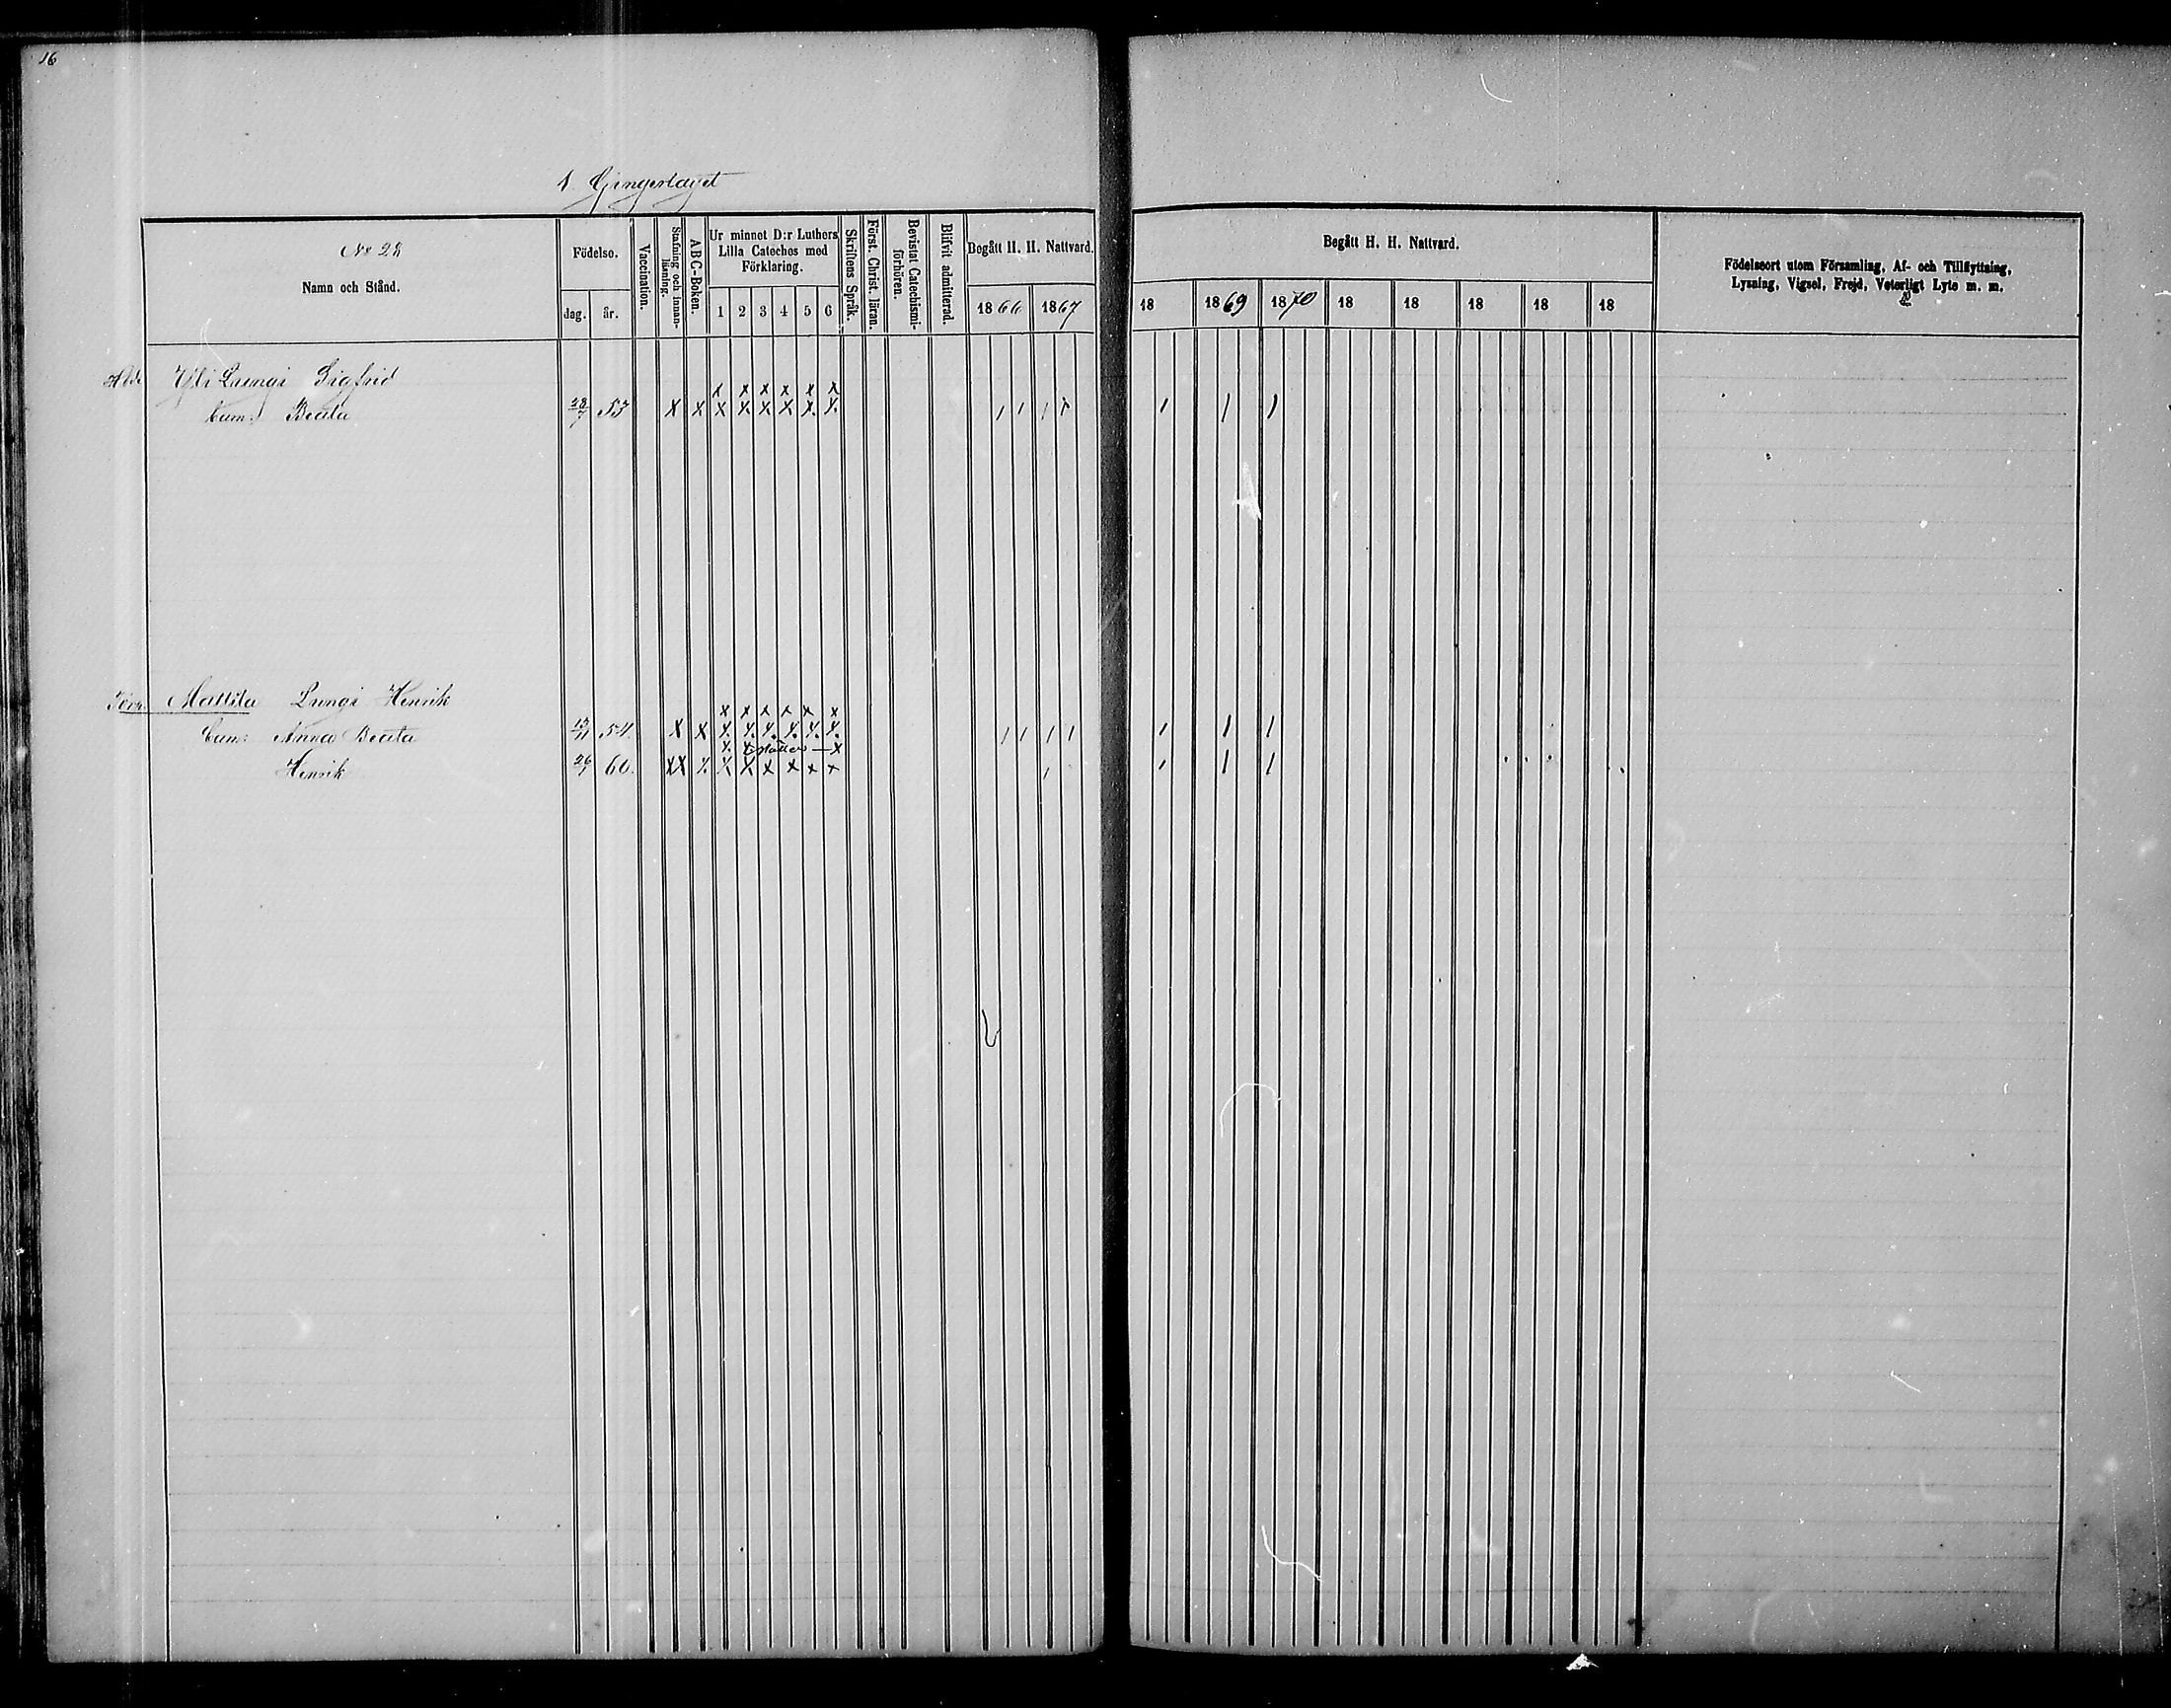 16
1 Gjengerlaget
No 28
Namn och Stånd.
Födelse.
dag. år.
Vaccination.
Stafning och innanläsning.
ABC-Boken.
Ur minnet D:r Luthers Lilla Cateches med Förklaring.
1 2 3 4 5 6
Skriftens Språk.
Först. Christ. läran.
Bevistat Catechismiförhören.
Blifvit admitterad.
Begått H. H. Nattvard.
1866 1867
Begått H. H. Nattvard.
18 1869 1870 18 18 18 18 18
Födelseort utom Församling, Af- och Tillflyttning,
Lysning, Vigsel, Frejd, Veterligt Lyte m. m.
Yli Lungi Sigfrid
x x x x x x
Cam: Beata 28/7 53 x x x x x x x x 1 1 1 1 1 1 1
Mattila Lungi Henrik
x x x x x x
Cam: Anna Beata 13/11 54 x x x x x x x x 1 1 1 1 1 1 1
Henrik 26/1 60. xx x x x x x x x 1 1 1 1